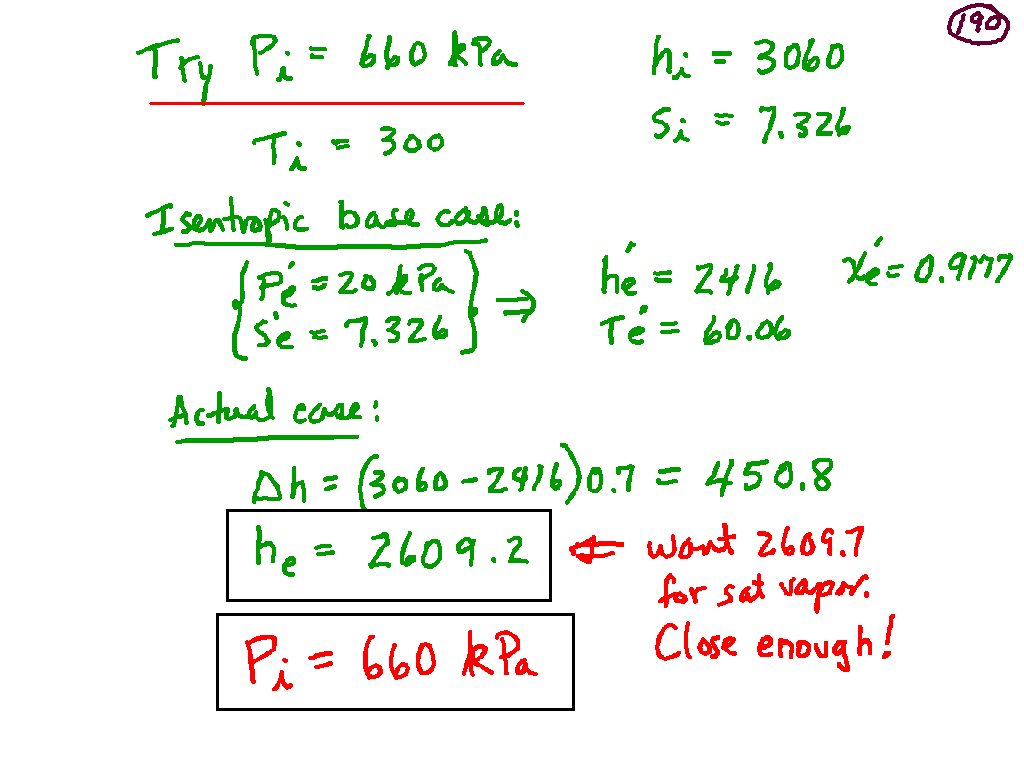 190
Try Pi = 660 kPa
hi = 3060
Ti = 300
si = 7.326
Isentropic base case:
{ Pe' = 20 kPa
{ se' = 7.326 } ⇒
he' = 2416
xe' = 0.9177
Te' = 60.06
Actual case:
Δh = (3060 - 2416) 0.7 = 450.8
he = 2609.2 ⇐ want 2609.7
for sat vapor.
Close enough!
Pi = 660 kPa